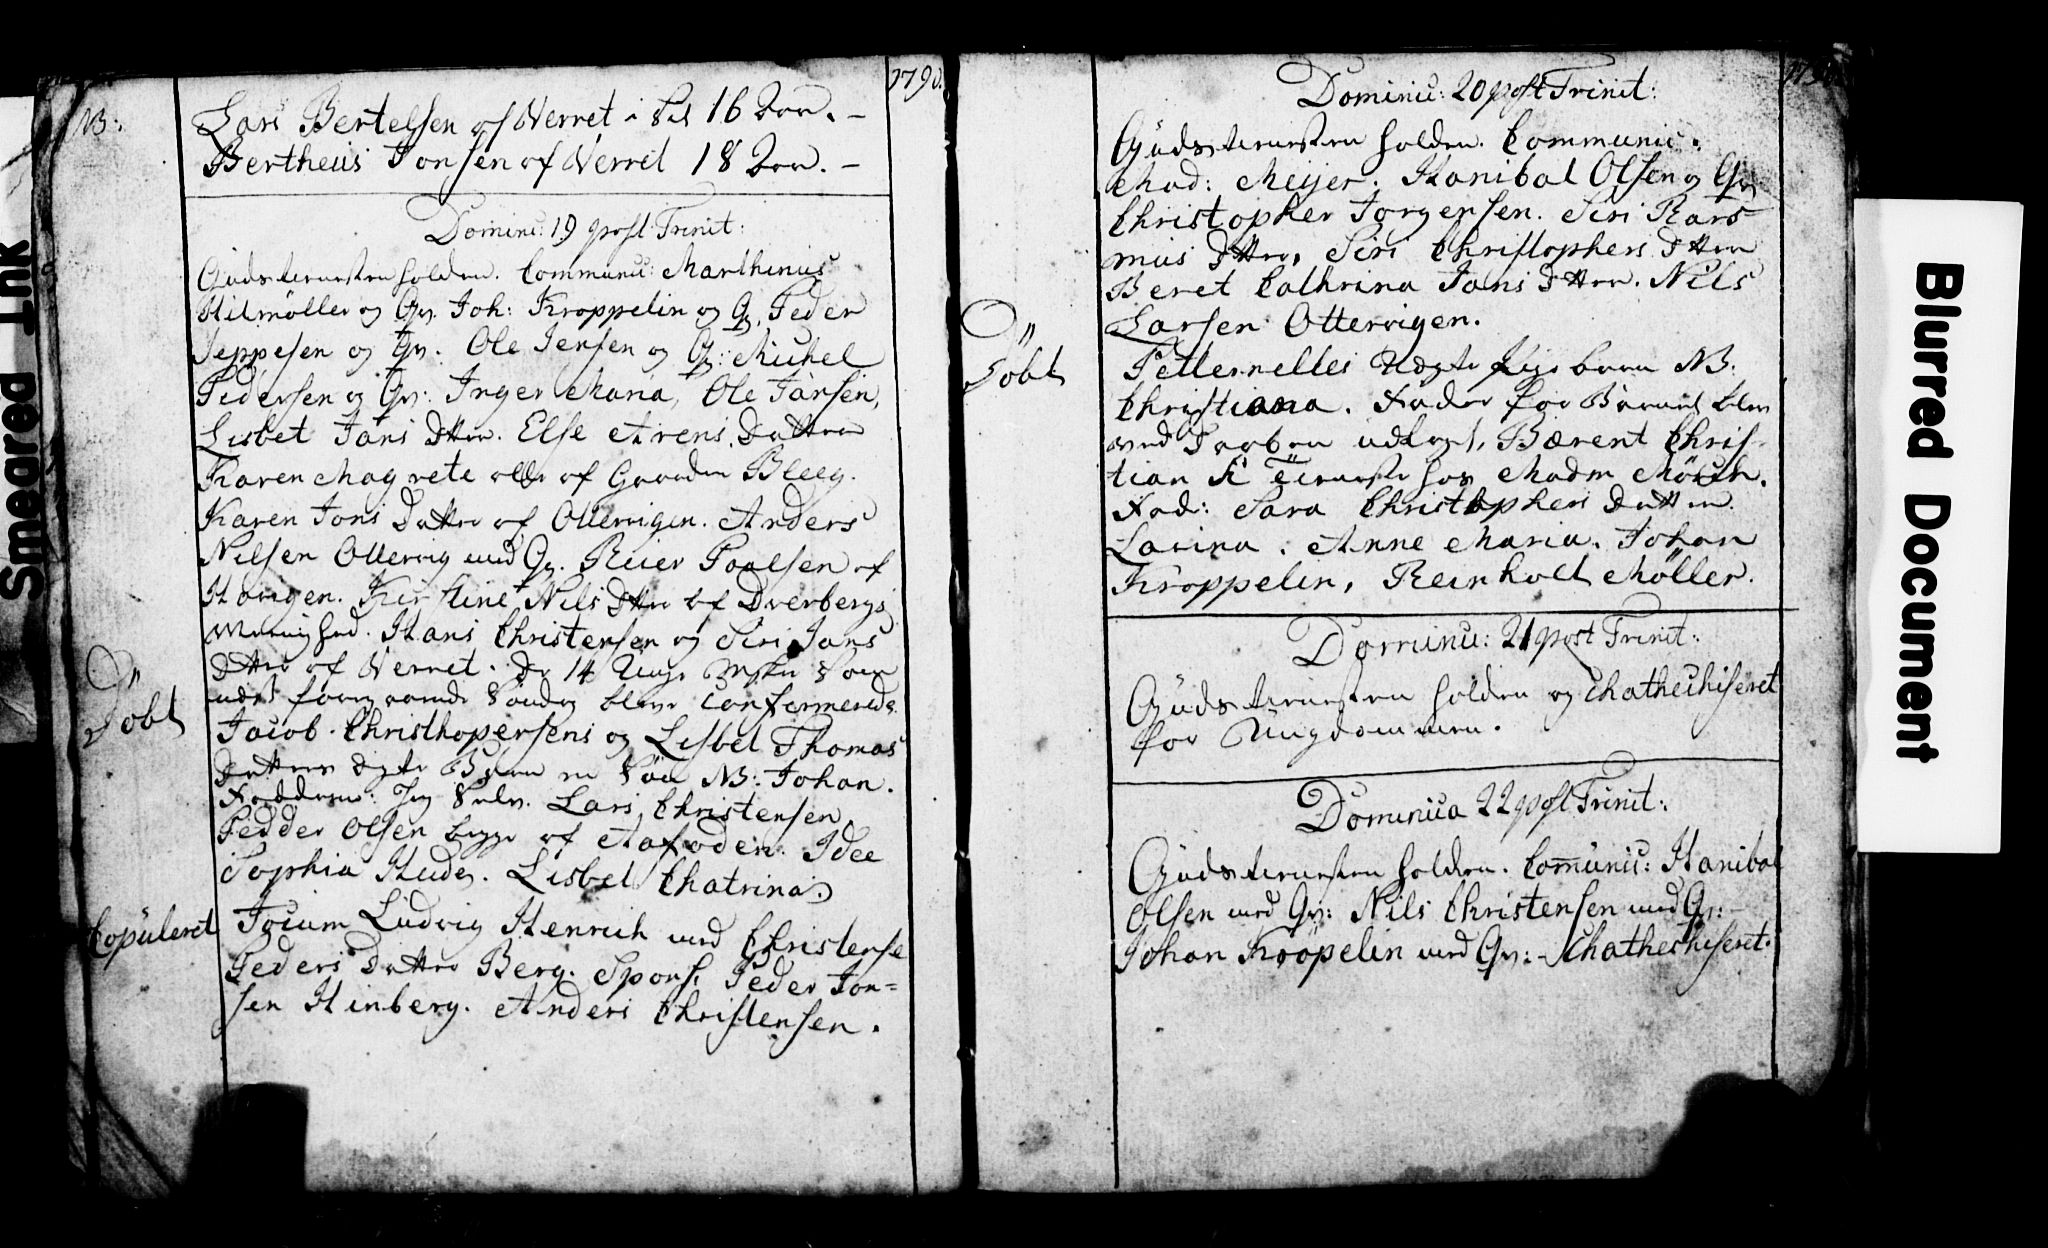 1790.
NB:
Lars Bertelsen af Verret i Sit 16 Aar. –
Bertheus Jonsen af Verret 18 Aar. –
Dominic: 19 post Trinit:
Gudstienesten holden. Communic: Marthinus
Hilmöller og Qv. Joh: Kroppelin og Qv. Peder
Jeppesen og Qv: Ole Jensen og Qv: Michel
Pedersen og Qv: Inger Maria, Ole Jansen,
Lisbet Jans Dtter. Else Arens Datter
Karen Magrete alle af Gaarden Bleeg.
Karen Jons Datter af Ottervigen. Anders
Nilsen Ottervig med Qv. Reier Poelsen af
Havigen. Kirstine Nils Dtter af Dverbergs
Menighed. Hans Christensen og Siri Jans
Dtter af Verret. De 14 Unge Msker som
næst foregaaende Söndag bleve Confermerede.
Döbt
Jacob Christhopersens og Lisbet Thomas
Datters ægte Barn en Sön NB: Johan.
Faddere: Jeg Selv. Lars Christensen
Pedder Olsen begge af Aafoden. Idee
Sophia Heide. Lisbet Chatrina.
Copuleret
Jocum Ludvig Henrich med Christense
Peders Datter Berg. Spons. Peder Jon=
sen Hinberg. Anders Christensen.
Dominic: 20 post Trinit:
Gudstienesten holden. Communic:
Mad: Meijer. Hanibal Olsen og Qv
Christopher Jorgensen. Siri Rars
mus Dtter, Siri Christophers Dtter
Beret Cathrina Jans Dtter. Nils
Larsen Ottervigen.
Döbt
Petternelles Uægte Pige barn NB:
Christiana. Fader for Barnet blev
ved Daaben udlagt, Bærent Chris-
tian K Tieneste hos Madm Mörch.
Fad: Sara Christophers Datter
Larina. Anne Maria. Johan
Kroppelin, Reinholt Möller.
Dominic: 21 post Trinit:
Gudstienesten holden og Chathechiseret
for Ungdommen.
Dominica 22 post Trinit:
Gudstienesten holden. Comunic: Hanibal
Olsen med Qv: Nils Christensen med Qv:
Johan Kröpelin med Qv: - Chathechiseret.
Smeared Ink
Blurred Document